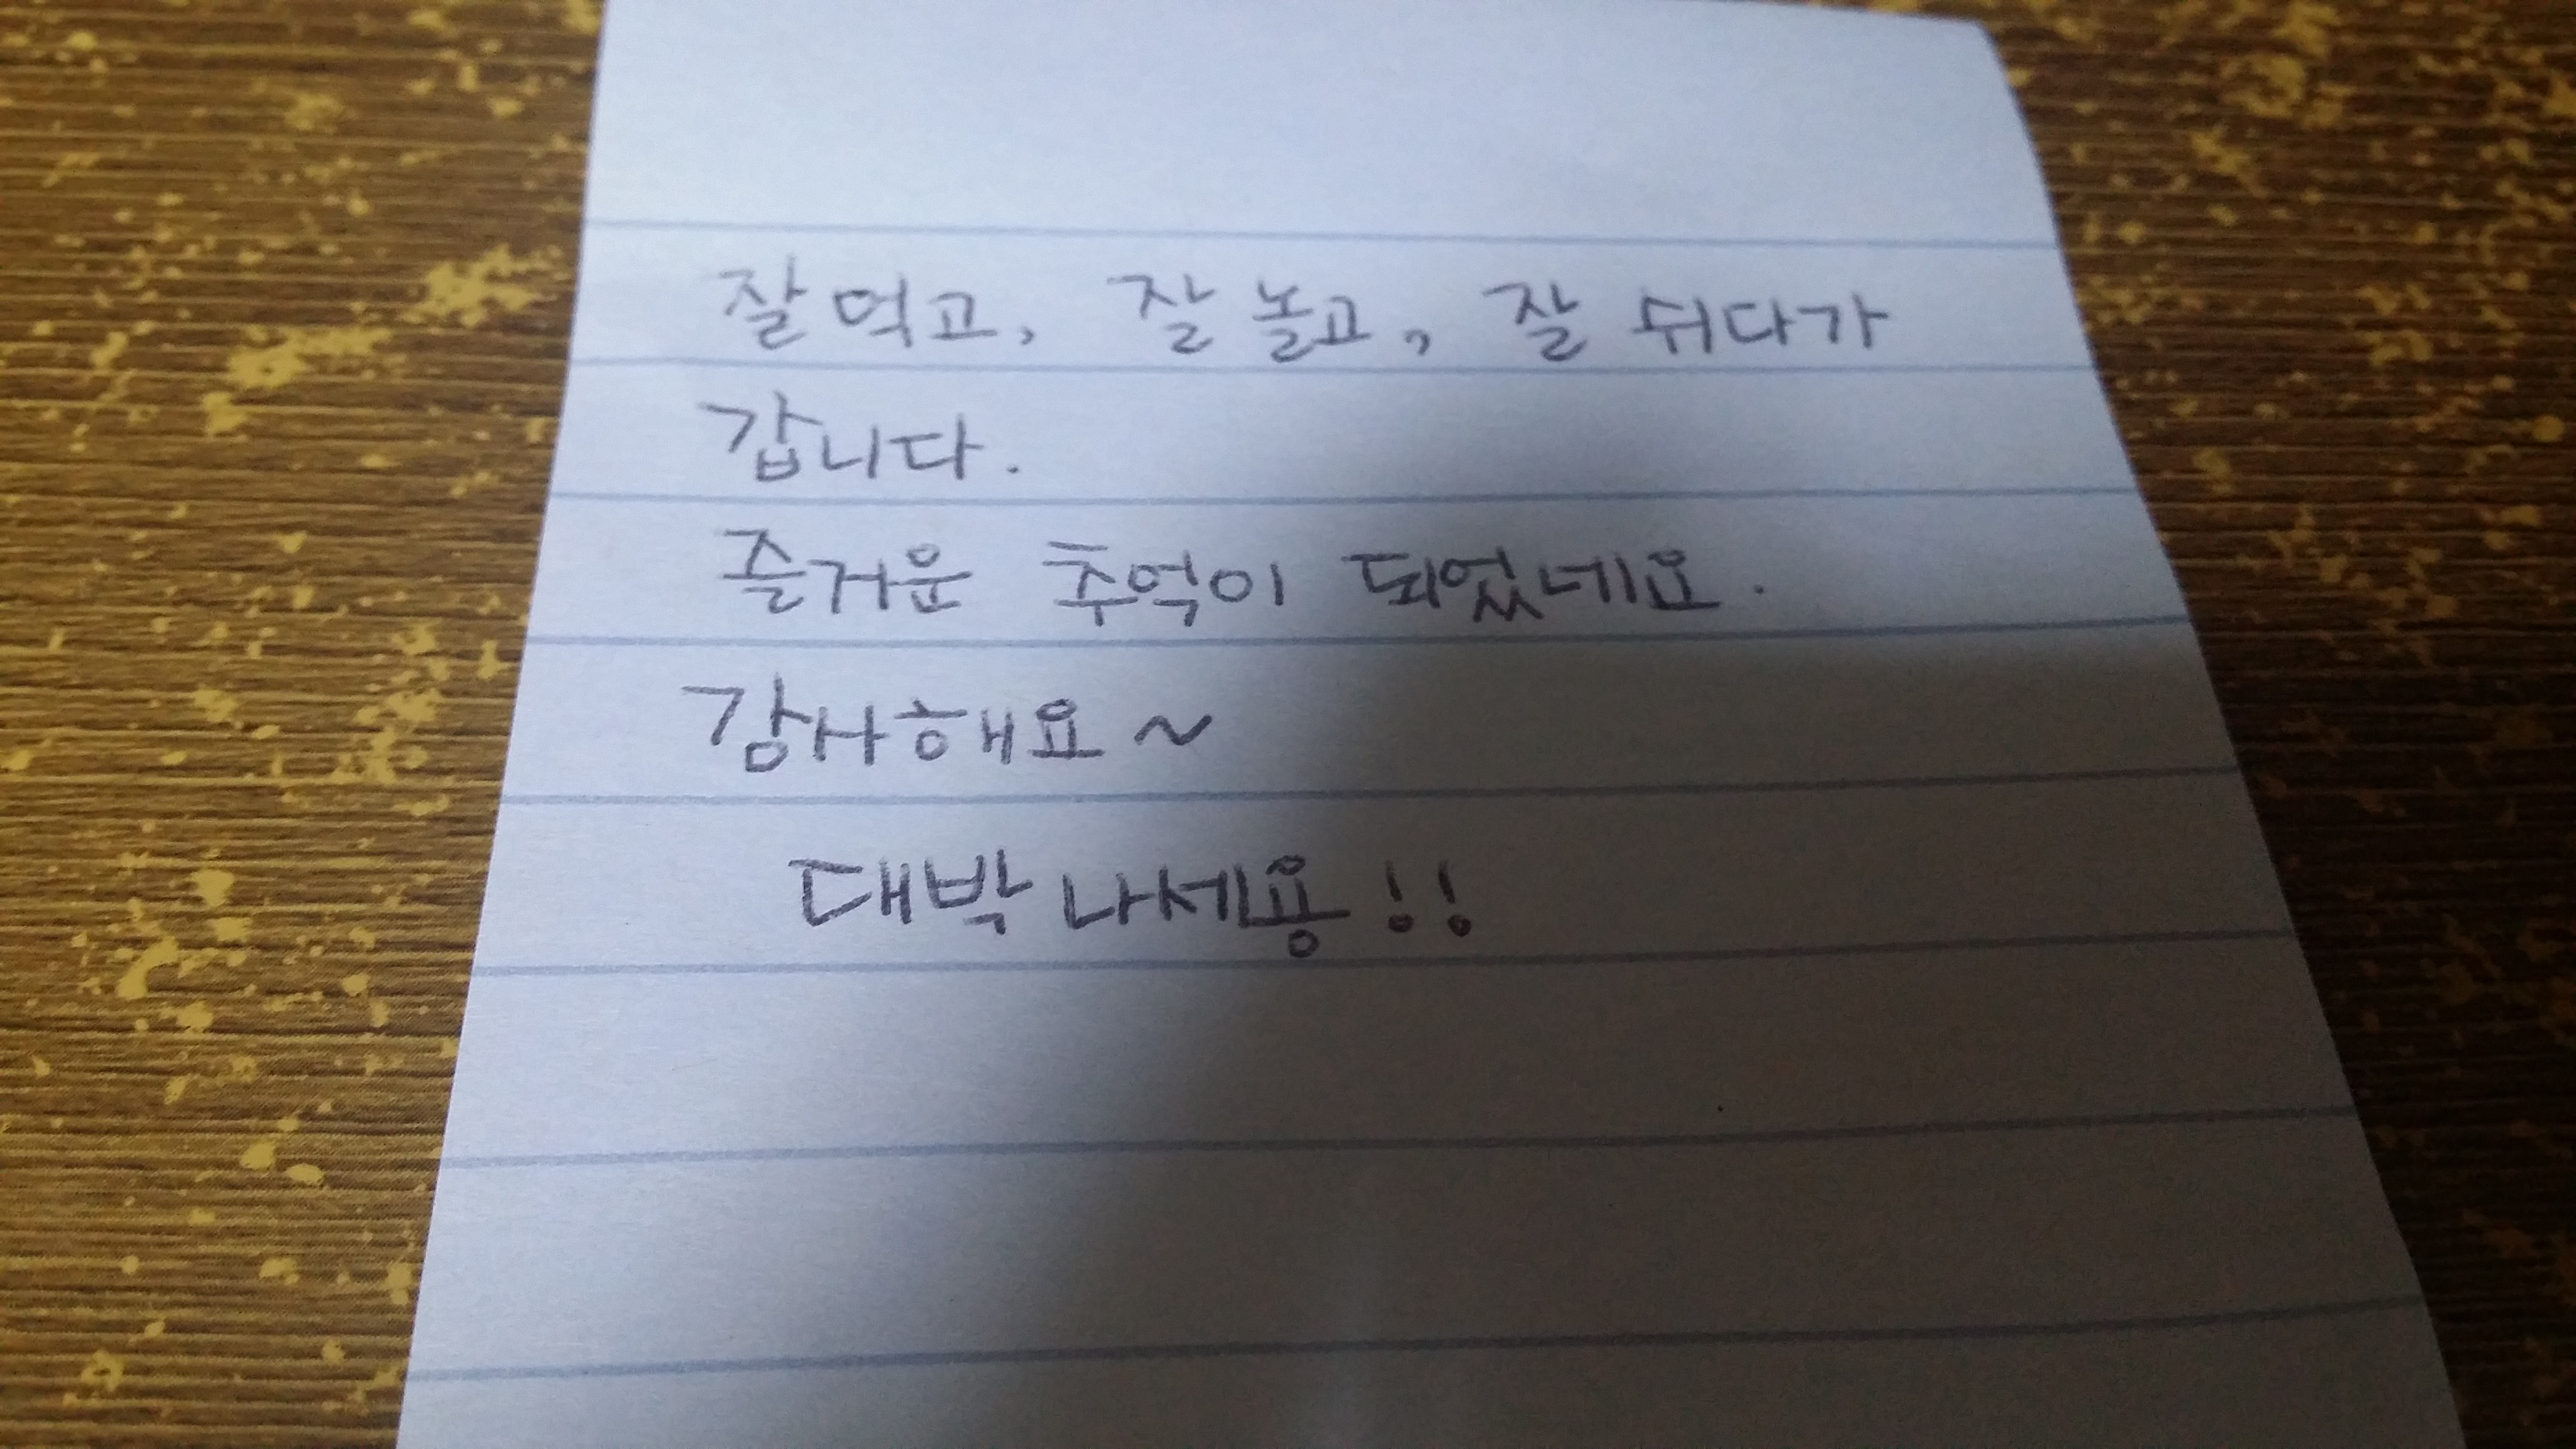 잘 먹고, 잘 놀고, 잘 쉬다가
갑니다.
즐거운 추억이 되었네요.
감사해요~
대박 나세용!!